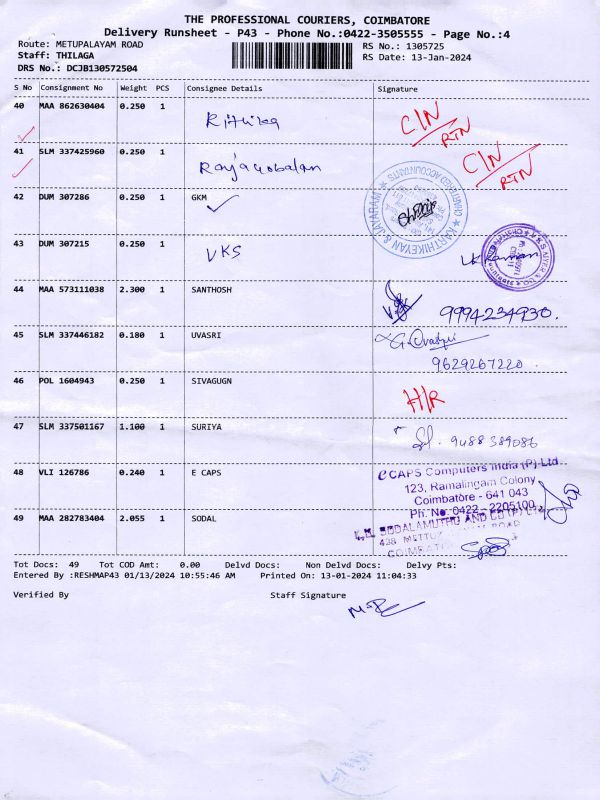 THE PROFESSIONAL COURIERS, COIMBATORE
Delivery Runsheet - P43 - Phone No.:0422-3505555 - Page No.:4
Route: METUPALAYAM ROAD
RS No.: 1305725
Staff: THILAGA
RS Date: 13-Jan-2024
DRS No.: DCJB130572504
S No Consignment No Weight PCS Consignee Details Signature
40 MAA 862630404 0.250 1 Rithika C/N RTN
41 SLM 337425960 0.250 1 Rajagobalan C/N RTN
42 DUM 307286 0.250 1 GKM
KARTHIKEYAN & JAYARAM
CHARTERED ACCOUNTANTS
43 DUM 307215 0.250 1 VKS
44 MAA 573111038 2.300 1 SANTHOSH 9994234930.
45 SLM 337446182 0.180 1 UVASRI G. Uvasri
9629267220.
46 POL 1604943 0.250 1 SIVAGUGN H/R
47 SLM 337501167 1.100 1 SURIYA 9488389086
48 VLI 126786 0.240 1 E CAPS
eCAPS Computers India (P) Ltd
123, Ramalingam Colony
Coimbatore - 641 043
Ph. No. 0422 - 2205100
49 MAA 282783404 2.055 1 SODAL
SODALAMUTHU AND CO (P) LTD
ROAD
Tot Docs: 49 Tot COD Amt: 0.00 Delvd Docs: Non Delvd Docs: Delvy Pts:
Entered By :RESHMAP43 01/13/2024 10:55:46 AM Printed On: 13-01-2024 11:04:33
Verified By Staff Signature